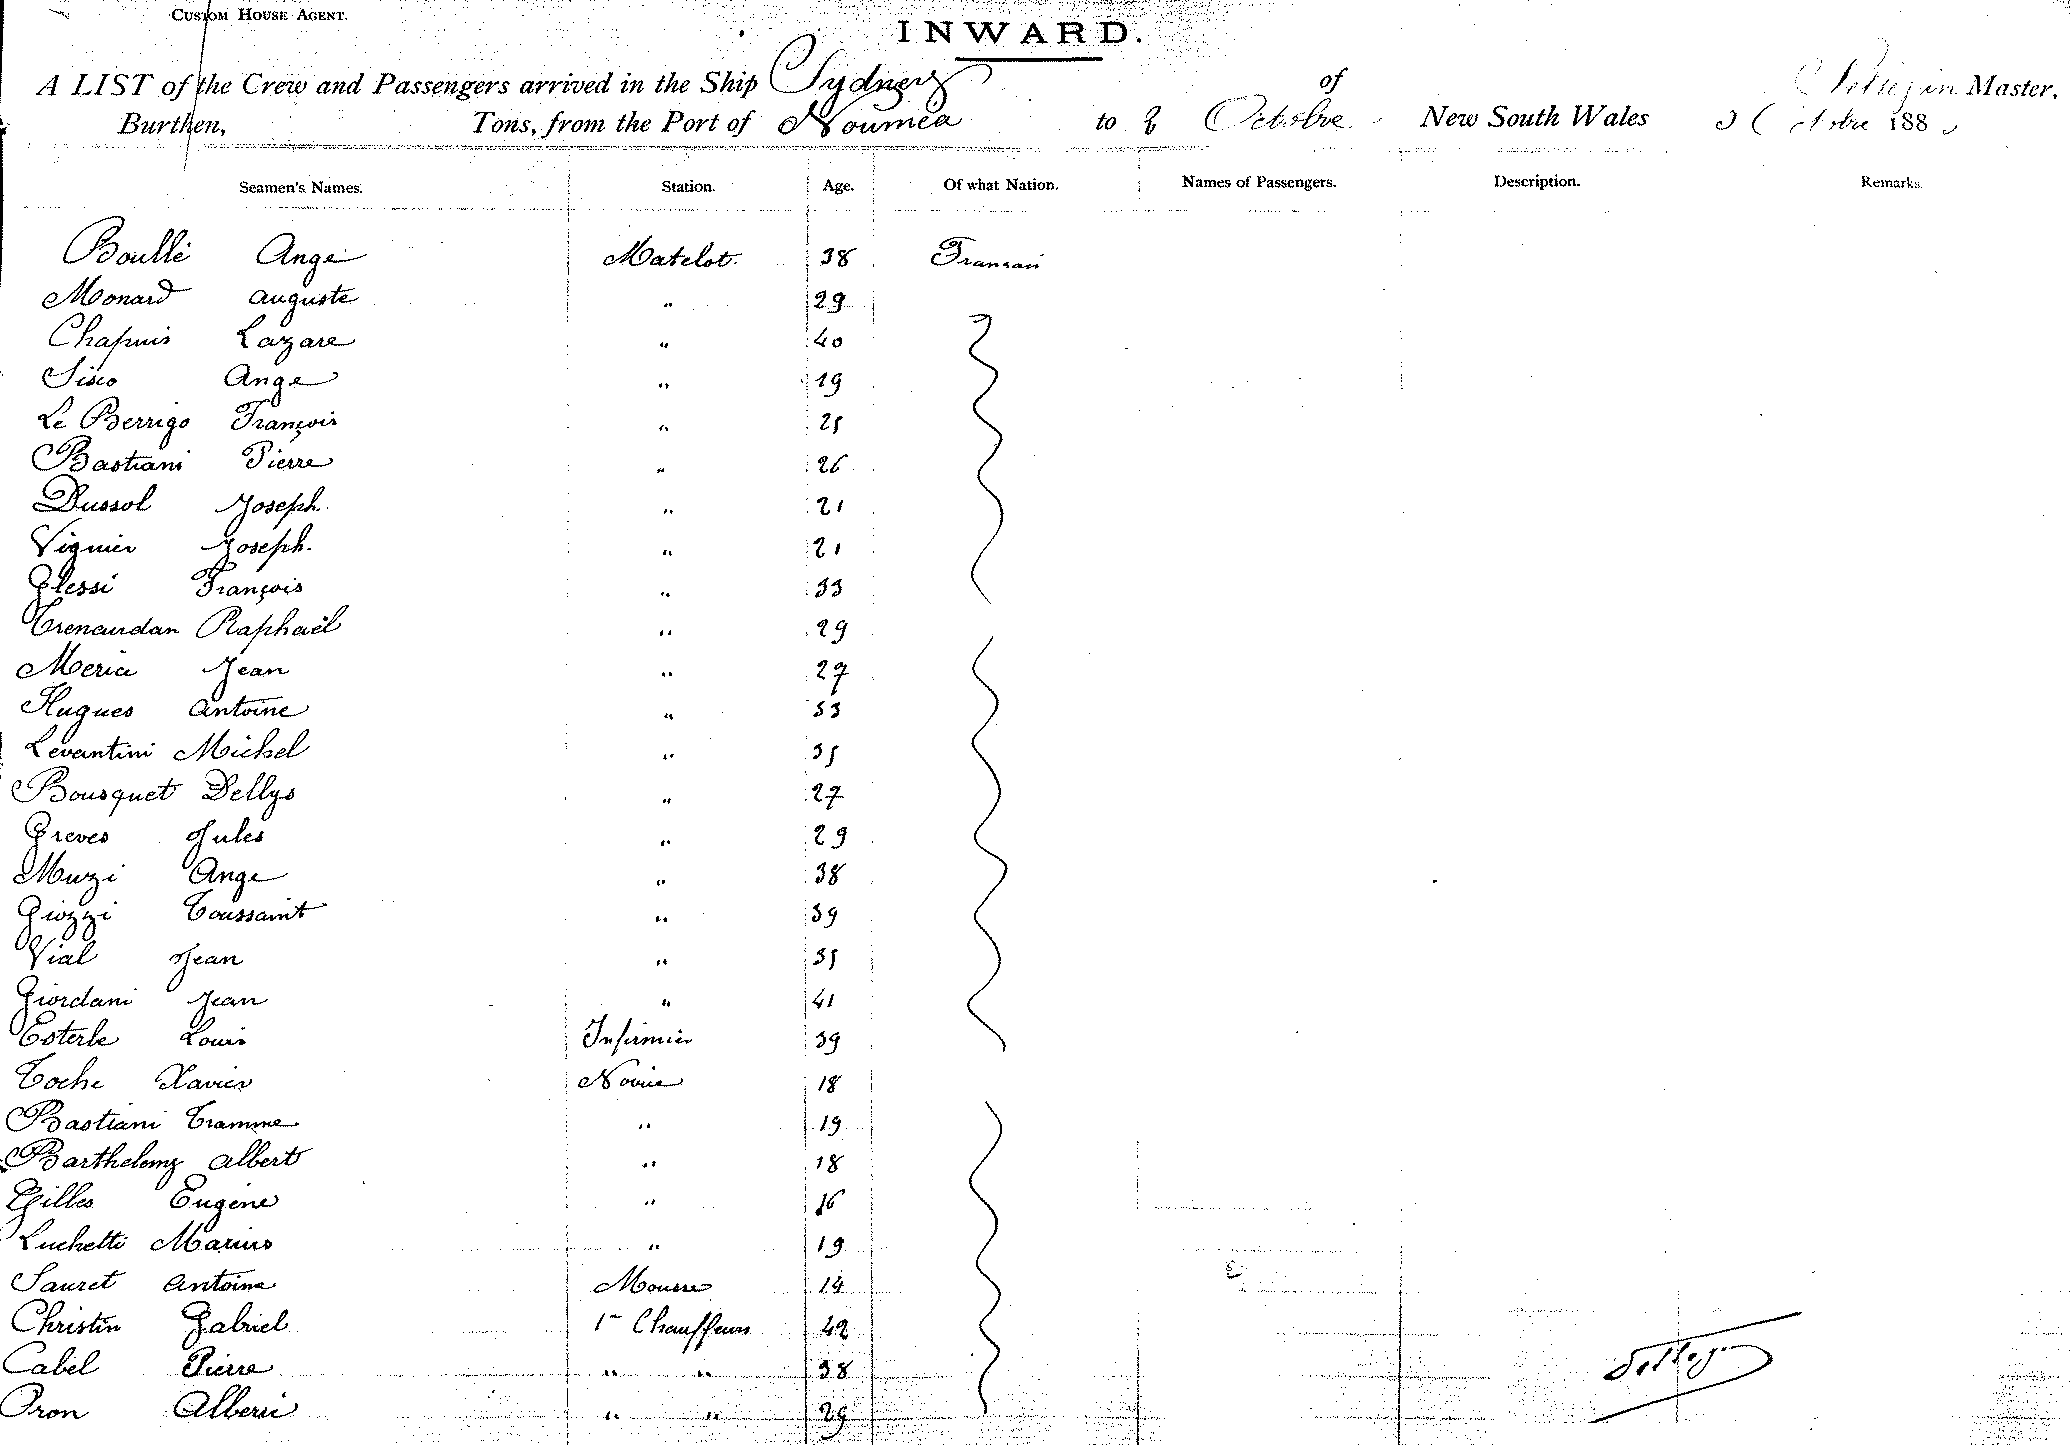 CUSTOM HOUSE AGENT.
INWARD.
A LIST of the Crew and Passengers arrived in the Ship Sydney of Pellegrin Master,
Burthen, Tons, from the Port of Nouméa to 8 Octobre New South Wales Octobre 188
Seamen's Names. Station. Age. Of what Nation. Names of Passengers. Description. Remarks.
Boullé Ange Matelot. 38 Français
Monard Auguste " 29
Chapuis Lazare " 40
Sisco Ange " 19
Le Berrigo François " 25
Bastiani Pierre " 26
Dussol Joseph. " 21
Viguier Joseph. " 21
Glessi François " 33
Crenaudan Raphaël " 29
Meria Jean " 27
Hugues Antoine " 33
Levantini Michel " 35
Bousquet Dellys " 27
Greves Jules " 29
Muzi Ange " 38
Giozzi Toussaint " 39
Vial Jean " 35
Giordani Jean " 41
Esterle Louis Infirmier 39
Toche Xavier Novice 18
Bastiani " 19
Barthelemy Albert " 18
Gilles Eugène " 16
Luchetti Marius " 19
Sauret Antoine Mousse 14
Christin Gabriel 1er Chauffeurs 42
Cabel Pierre " " 38
Oron " " 29